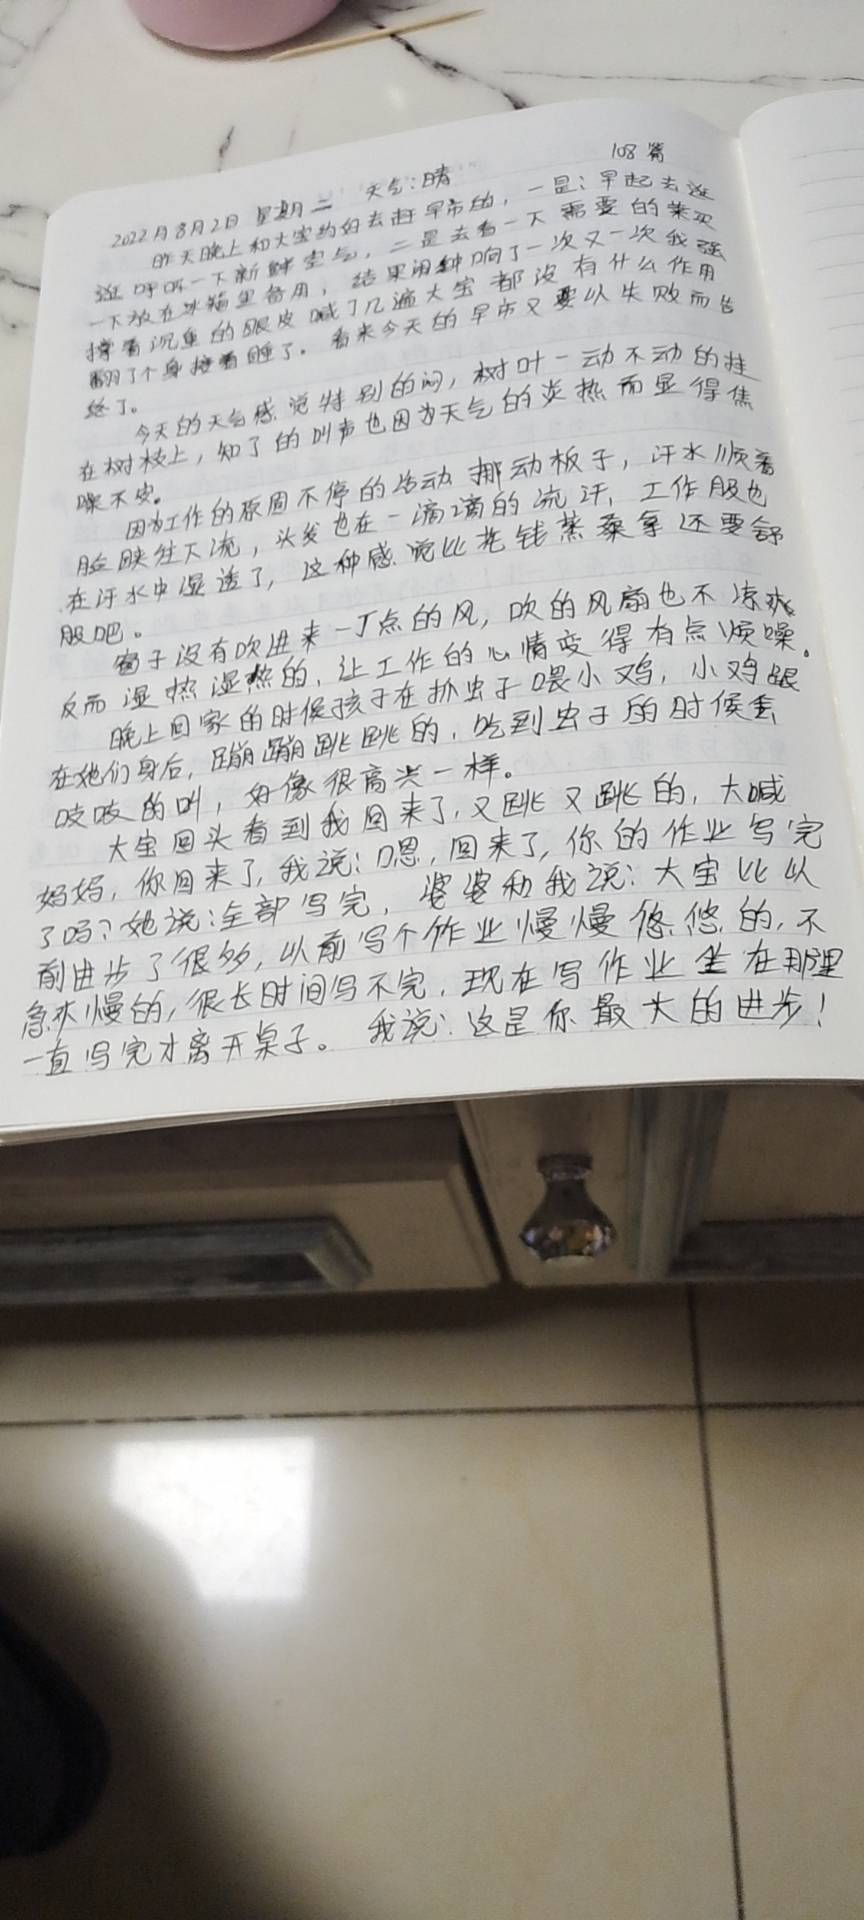 108篇
2022月8月2日 星期二 天气:晴
昨天晚上和大宝约好去赶早市的,一是:早起去逛
逛呼吸一下新鲜空气,二是去看一下需要的菜买
一下放在冰箱里备用,结果闹钟响了一次又一次我强
撑着沉重的眼皮喊了几遍大宝都没有什么作用
翻了个身接着睡了。看来今天的早市又要以失败而告
终了。
今天的天气感觉特别的闷,树叶一动不动的挂
在树枝上,知了的叫声也因为天气的炎热而显得焦
噪不安。
因为工作的原因不停的活动挪动板子,汗水顺着
脸颊往下流,头发也在一滴滴的流汗,工作服也
在汗水中湿透了,这种感觉比花钱蒸桑拿还要舒
服吧。
窗子没有吹进来一丁点的风,吹的风扇也不凉爽
反而湿热湿热的,让工作的心情变得有点烦噪。
晚上回家的时候孩子在抓虫子喂小鸡,小鸡跟
在她们身后,蹦蹦跳跳的,吃到虫子的时候
吱吱的叫,好像很高兴一样。
大宝回头看到我回来了,又跳又跳的,大喊
妈妈,你回来了,我说:嗯,回来了,你的作业写完
了吗?她说:全部写完,婆婆和我说:大宝比以
前进步了很多,以前写个作业慢慢悠悠的,不
急不慢的,很长时间写不完,现在写作业坐在那里
一直写完才离开桌子。我说:这是你最大的进步!